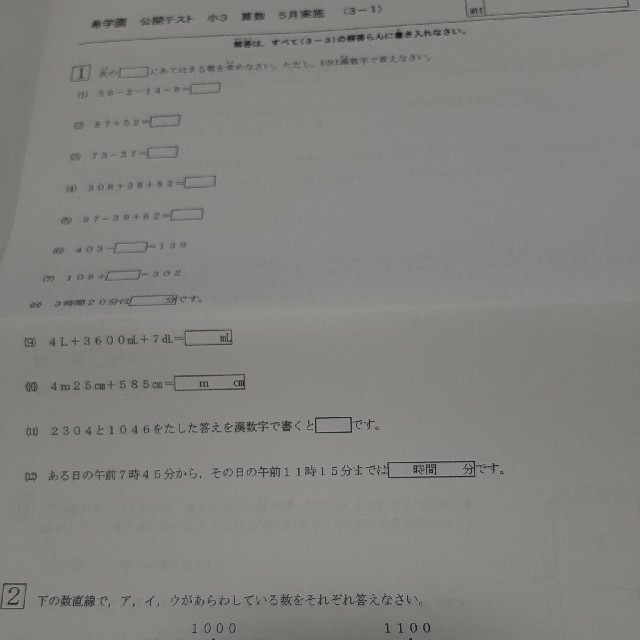 希学園 公開テスト 小3 算数 5月実施 (3-1)
解答は、すべて(3-3)の解答らんに書き入れなさい。
1 次の□にあてはまる数を求めなさい。ただし、(11)は漢数字で答えなさい。
(1) 56-2-14-8=□
(2) 87+52=□
(3) 73-37=□
(4) 308+38+83=□
(5) 97-39+62=□
(6) 403-□=139
(7) 109+□=302
(8) 3時間20分は□分です。
(9) 4L+3600mL+7dL=□mL
(10) 4m25cm+585cm=□m□cm
(11) 2304と1046をたした答えを漢数字で書くと□です。
(12) ある日の午前7時45分から,その日の午前11時15分までは□時間□分です。
2 下の数直線で,ア,イ,ウがあらわしている数をそれぞれ答えなさい。
1000 1100